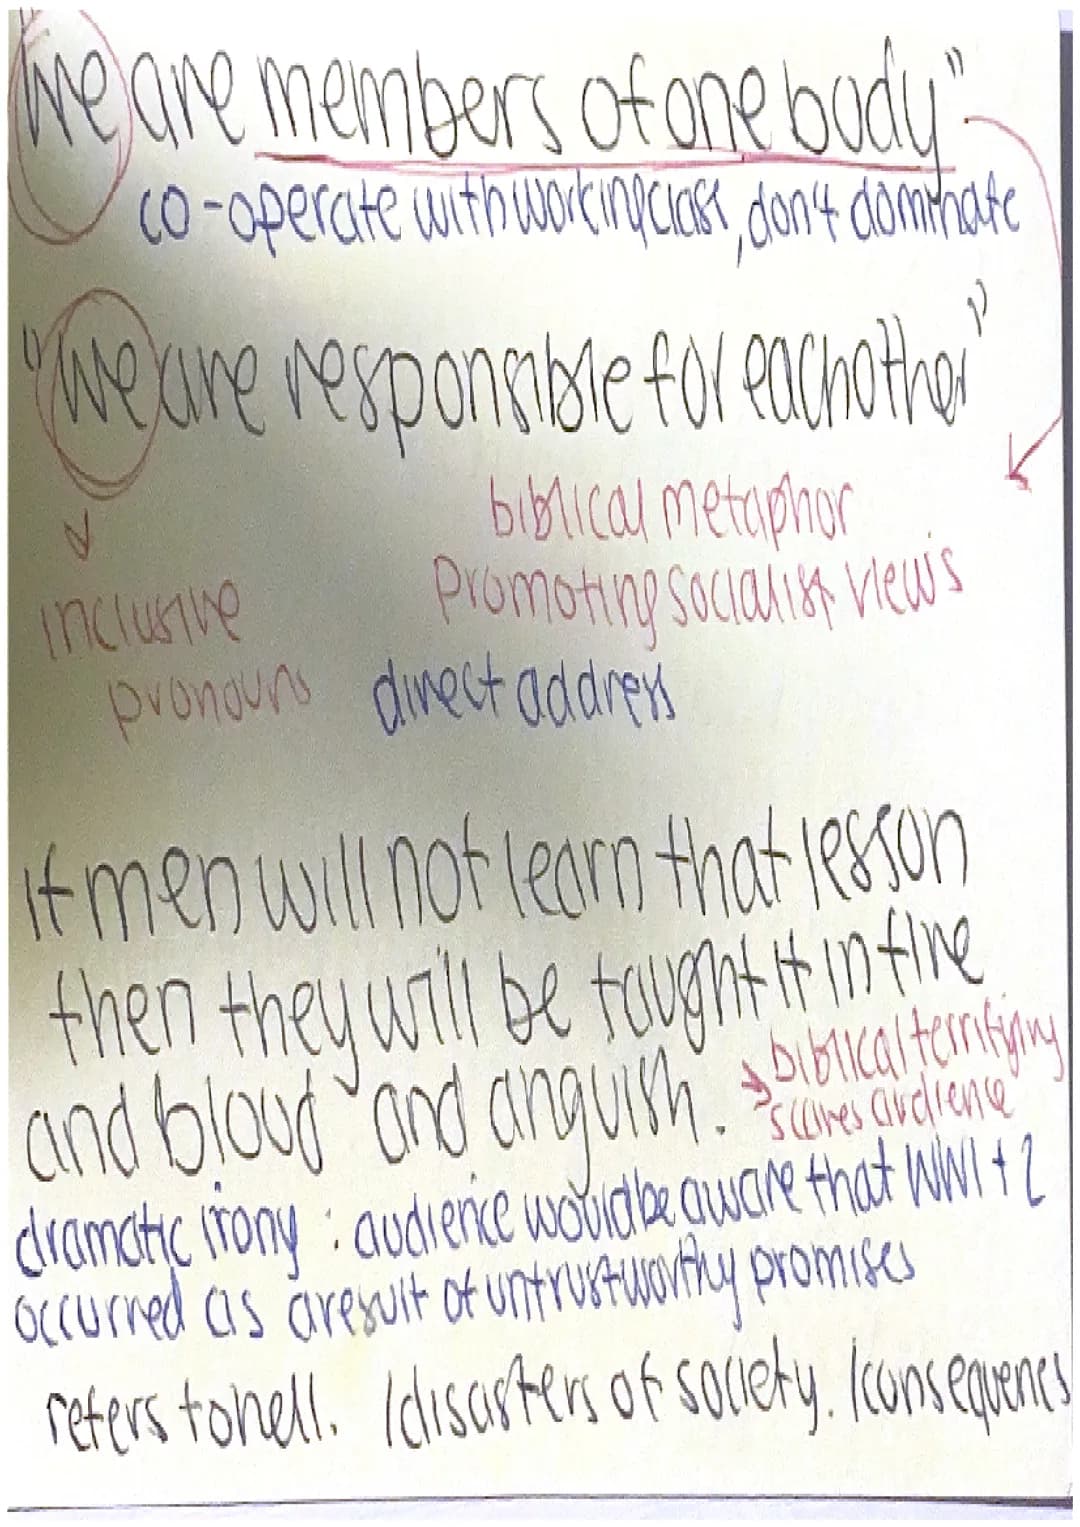 "We are members of one body"
co-operate with working class, don't dominate
"We are responsible for eachother"
biblical metaphor
promoting socialist views
inclusive
pronouns
direct address
if men will not learn that lesson
then they will be taught it in fire
and blood and anguish.
biblical terrifying
scares audience
dramatic irony : audience would be aware that WW1 + 2
occurred as a result of untrustworthy promises
refers to hell. /disasters of society. /consequences